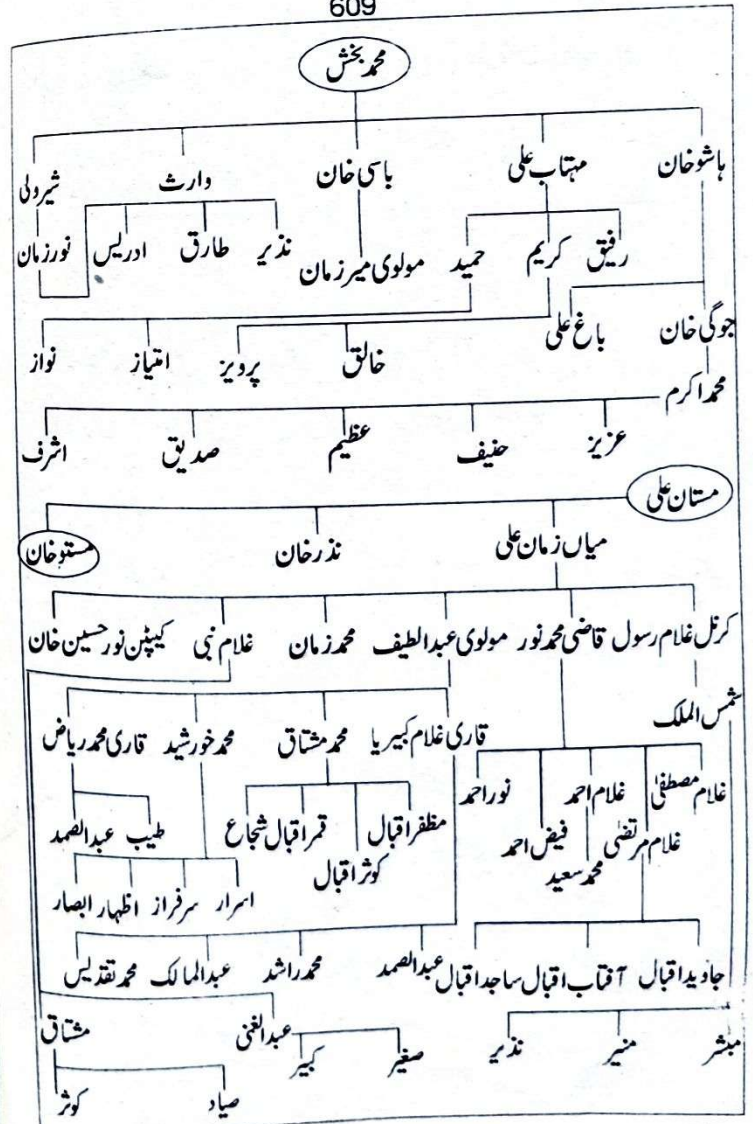 609
محمد بخش
ہاشو خان مہتاب علی باسی خان وارث شیر ولی
رفیق کریم حمید مولوی میر زمان نذیر طارق ادریس نور زمان
جوگی خان باغ علی خالق پرویز امتیاز نواز
محمد اکرم
عزیز حنیف عظیم صدیق اشرف
مستان علی
میاں زمان علی نذر خان مستو خان
کرنل غلام رسول قاضی محمد نور مولوی عبداللطیف محمد زمان غلام نبی کیپٹن نور حسین خان
شمس الملک
قاری غلام کبیریا محمد مشتاق محمد خورشید قاری محمد ریاض
غلام مصطفیٰ غلام احمد نور احمد
غلام مرتضیٰ فیض احمد
محمد سعید
مظفر اقبال قمر اقبال شجاع طیب عبدالصمد
کوثر اقبال
اسرار سرفراز اظہار ابصار
جاوید اقبال آفتاب اقبال ساجد اقبال عبدالصمد محمد راشد عبدالمالک محمد تقدیس
مبشر منیر نذیر صغیر کبیر عبدالغنی مشتاق
صیاد کوثر